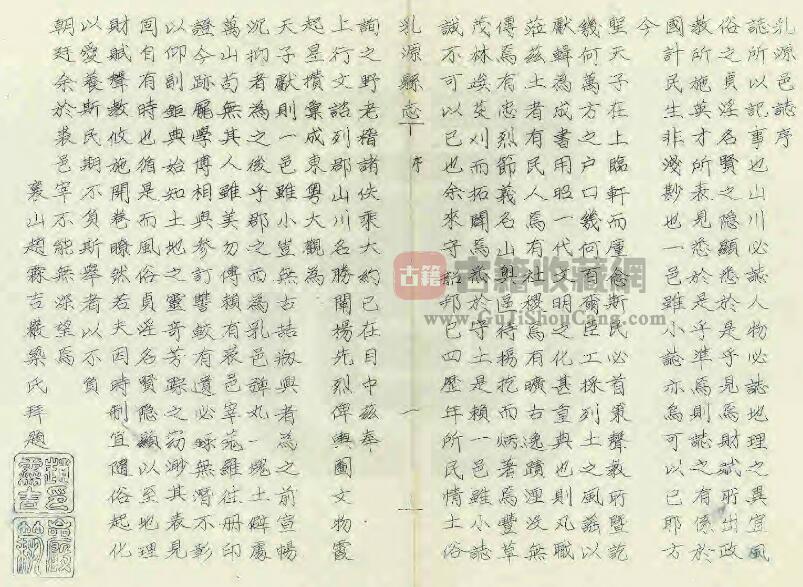 乳源邑誌序
誌所以記事也山川必誌人物必誌地理之異宣風
俗之貞淫名賢之隱顯悉於是乎見焉財賦所出政
教所施英才所表見悉於是乎準焉則誌之有係於
國計民生非淺尠也一邑雖小誌亦烏可以已耶方
今
聖天子在上臨軒而廑念斯民必首秉聲教所暨訖
幾何萬方之户口幾何百爾臣工採列土之風謡以
獻輯為成書用昭一代文明之化甚皇典也則凡職
茲土者有民人焉有社稷焉有曠古逸蹟湮没無
傳焉有忠烈節義名山奧區待揚挖而炳著焉豐草
茂林埃芟刈而拓闢焉於守土是賴一邑雖小誌
誠不可以已也余來守韶邦已四歷年所民情土俗
乳源縣志 序 一
詢之野老稽諸佚乘大約已在目中茲奉
上行文諮列郡山川名勝闡揚先烈俾輿圖文物霞
起星攢彙成東粤大觀為
天子獻則一邑雖小豈無古誌嗣興者為之前宣暢
沉抑者為之後乎郡之西為乳邑禆丸一塊土僻處
萬山苟無其人雖美勿傳賴有裘邑宰蒞雒往册印
證今跡屬學博相與參訂讐較有遺必録無潛不彰
以仰副鉅典始知土地之靈奇芳踪之窈渺其表見
固自有時也循是而風俗貞淫名賢隱顯以至地理
財賦聲教攸施開卷瞭然若夫因時制宜隨俗起化
以愛養斯民期不負斯舉者以不負
朝廷余於裘邑宰不能無深望焉
襄山趙霖吉嚴築氏拜題
古籍收藏网
www.GuJiShouCang.com